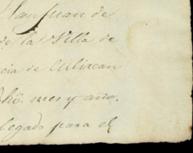 Juan de
de la Villa de
cia de Culiacan
dho. mes y año.
legado para el